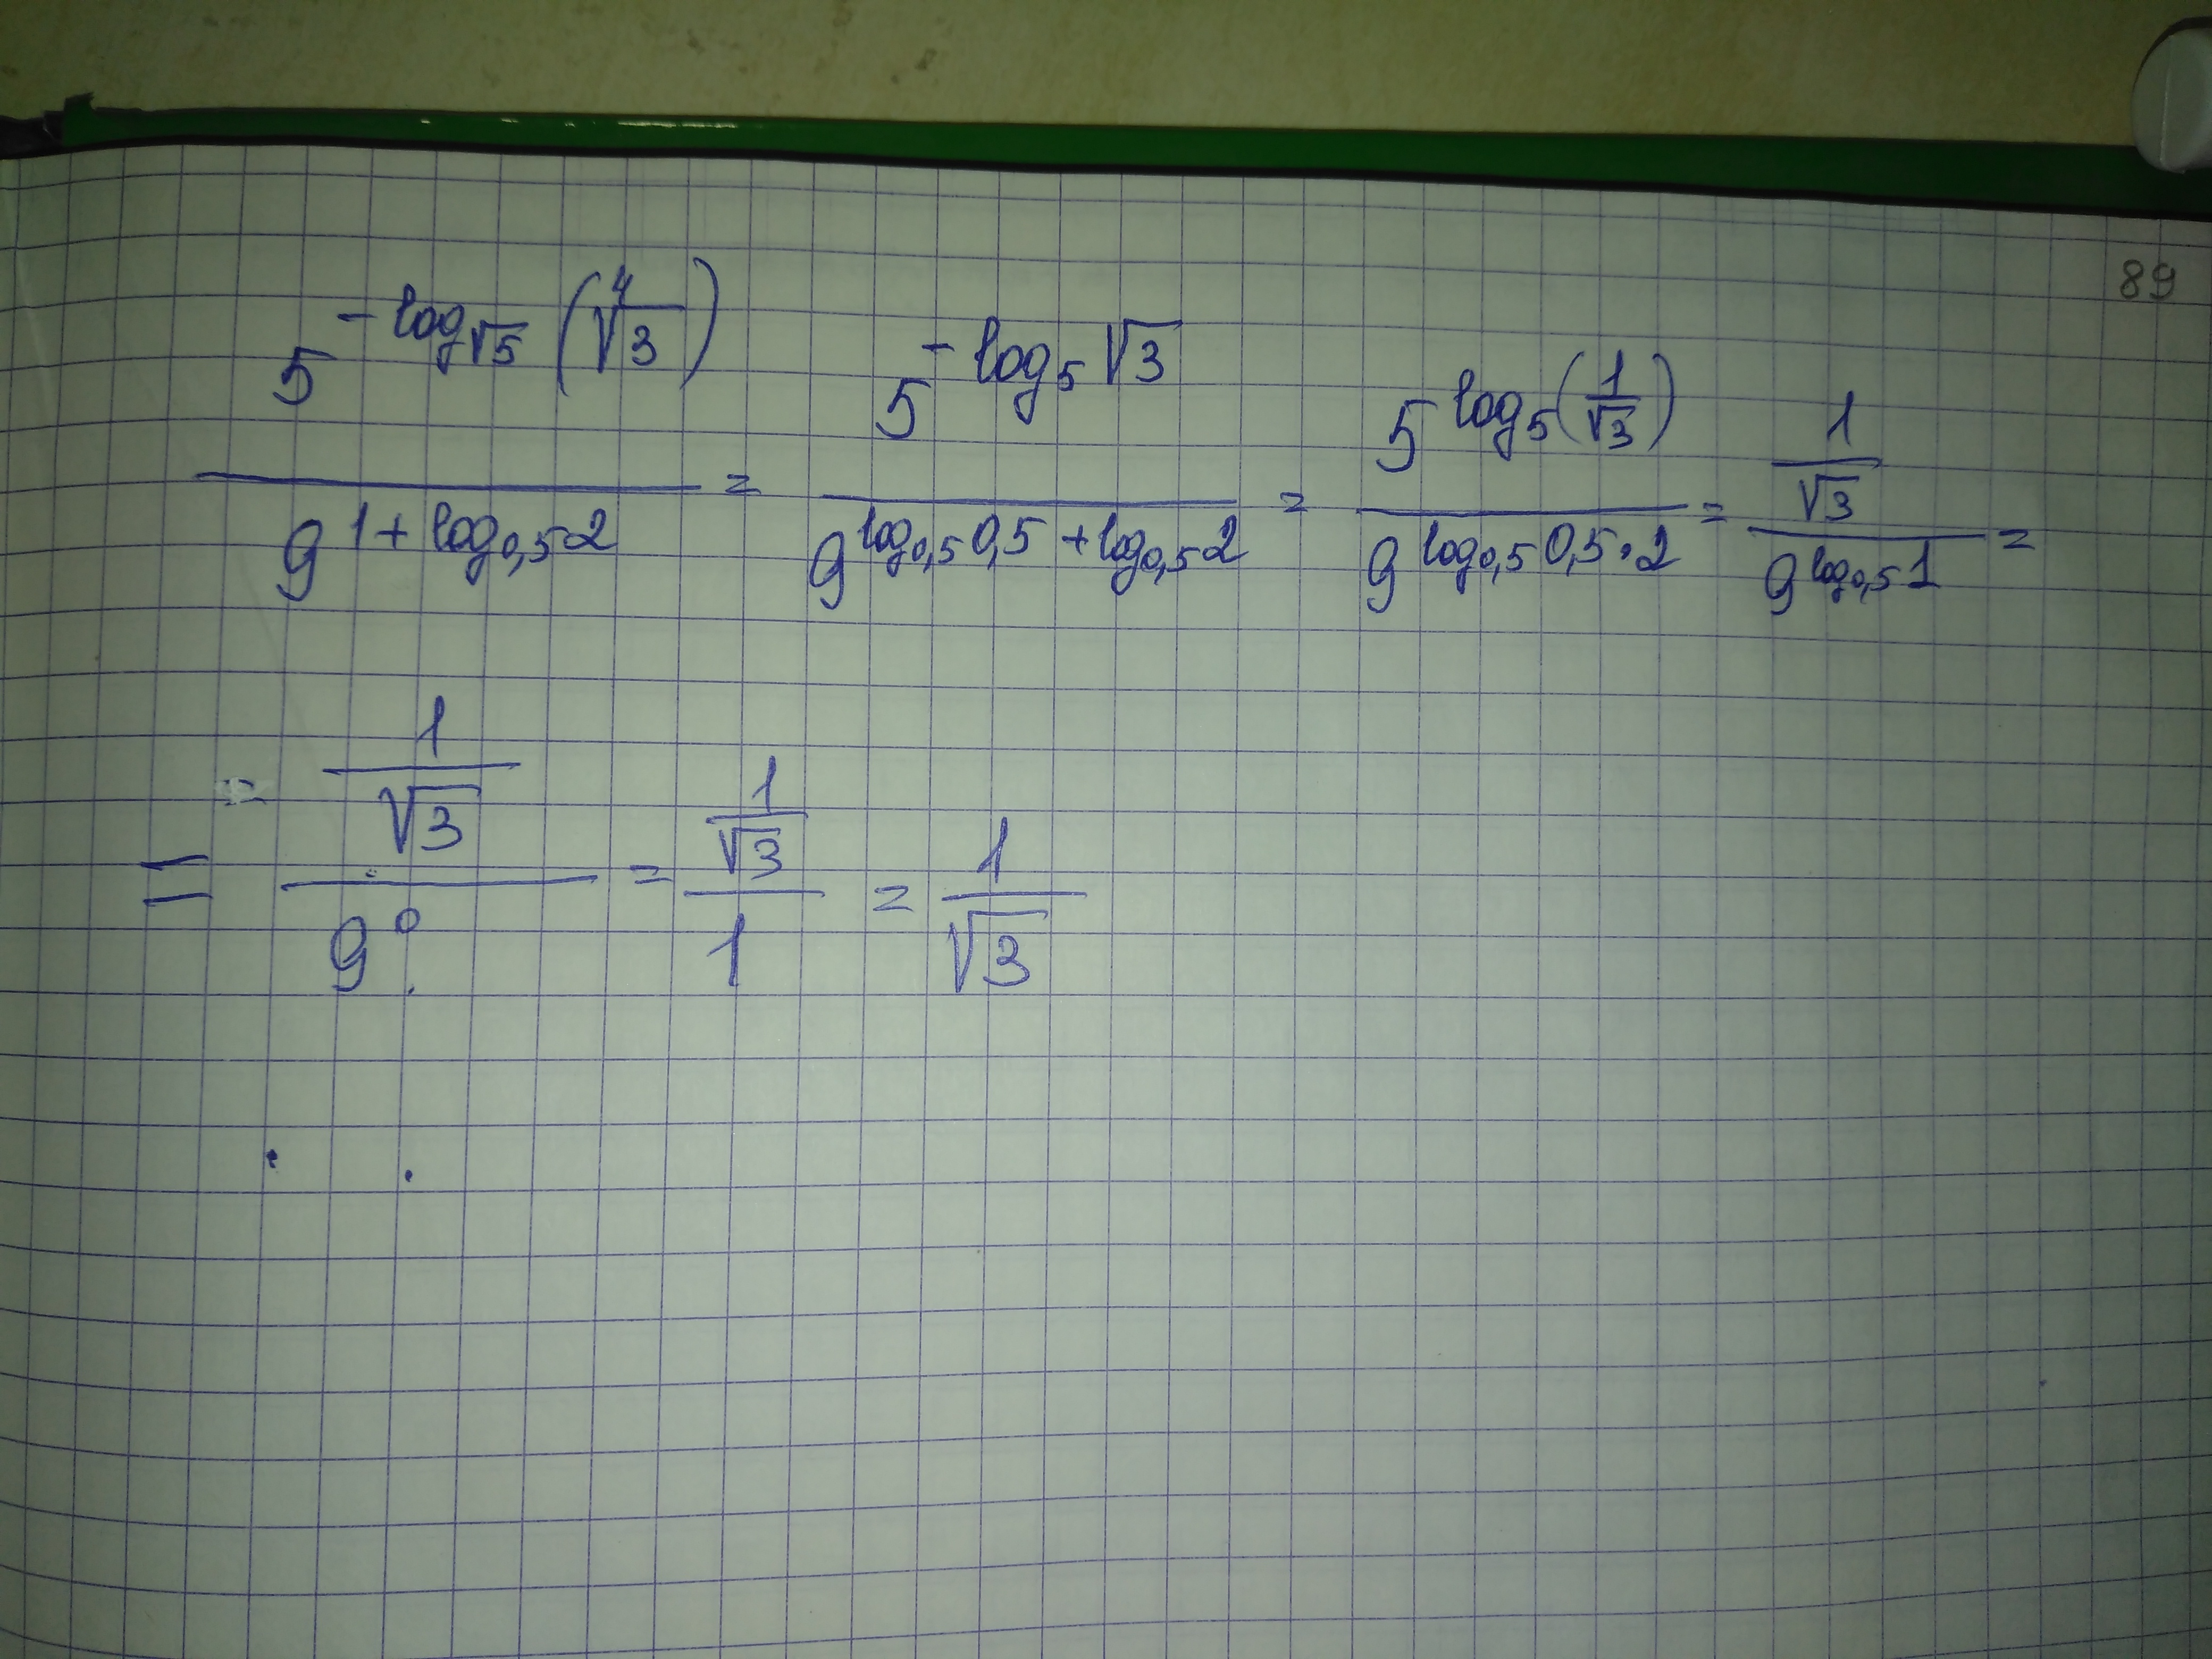 89
5^{-log_{√5}(∜3)} / 9^{1+log_{0,5}2} = 5^{-log_5 √3} / 9^{log_{0,5}0,5+log_{0,5}2} = 5^{log_5(1/√3)} / 9^{log_{0,5}0,5·2} = (1/√3) / 9^{log_{0,5}1} =
= (1/√3) / 9^0 = (1/√3) / 1 = 1/√3